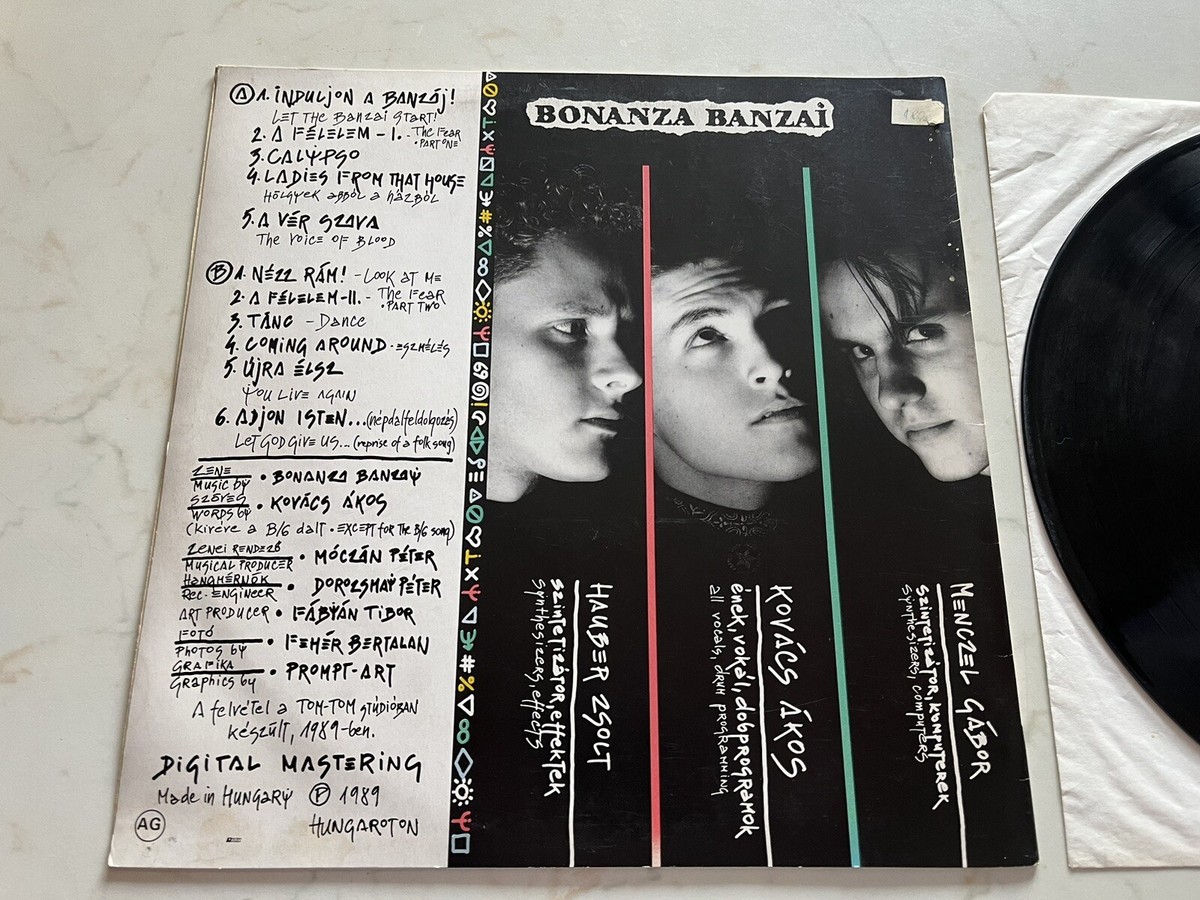 A 1. INDULJON A BANZÁJ!
LET THE BANZAI START!
2. A FÉLELEM - I. - The Fear
• PART ONE
3. CALYPSO
4. LADIES FROM THAT HOUSE
HÖLGYEK ABBÓL A HÁZBÓL
5. A VÉR SZAVA
The voice OF BLOOD
B 1. NÉZZ RÁM! - LOOK AT ME
2. A FÉLELEM-II. - The Fear
• PART TWO
3. TÁNC - Dance
4. COMING AROUND - ESZMÉLÉS
5. ÚJRA ÉLSZ
YOU LIVE AGAIN
6. ADJON ISTEN...(népdalfeldolgozás)
LET GOD GIVE US... (reprise of a folk song)
ZENE
MUSIC by • BONANZA BANZAY
SZÖVEG
WORDS by • KOVÁCS ÁKOS
(kivéve a B/6 dalt • EXCEPT for THE B/6 song)
ZENEI RENDEZŐ
MUSICAL PRODUCER • MÓCZÁN PÉTER
HANGMÉRNÖK
REC. ENGINEER • DOROZSMAY PÉTER
ART PRODUCER • FÁBYÁN TIBOR
FOTÓ
PHOTOS by • FEHÉR BERTALAN
GRAFIKA
Graphics by • PROMPT-ART
A felvétel a TOM-TOM STÚDIÓBAN
készült, 1989-ben.
DIGITAL MASTERING
Made in HUNGARY Ⓟ 1989
HUNGAROTON
AG
BONANZA BANZAI
HAUBER ZSOLT
szintetizátor, effektek
synthesizers, effects
KOVÁCS ÁKOS
ének, vokál, dobprogramok
all vocals, drum programming
MENCZEL GÁBOR
szintetizátor, komputerek
synthesizers, computers